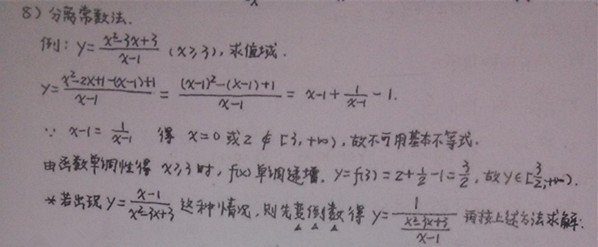 8) 分离常数法.
例: y=\frac{x²-3x+3}{x-1} (x≥3), 求值域.
y=\frac{x²-2x+1-(x-1)+1}{x-1} = \frac{(x-1)²-(x-1)+1}{x-1} = x-1+\frac{1}{x-1}-1.
∵ x-1=\frac{1}{x-1} 得 x=0或2∉[3,+∞), 故不可用基本不等式.
由函数单调性得 x≥3时, f(x)单调递增. y=f(3)=2+\frac{1}{2}-1=\frac{3}{2}, 故y∈[\frac{3}{2},+∞).
*若出现 y=\frac{x-1}{x²-3x+3} 这种情况, 则先变倒数得 y=\frac{1}{\frac{x²-3x+3}{x-1}} 再按上述方法求解.